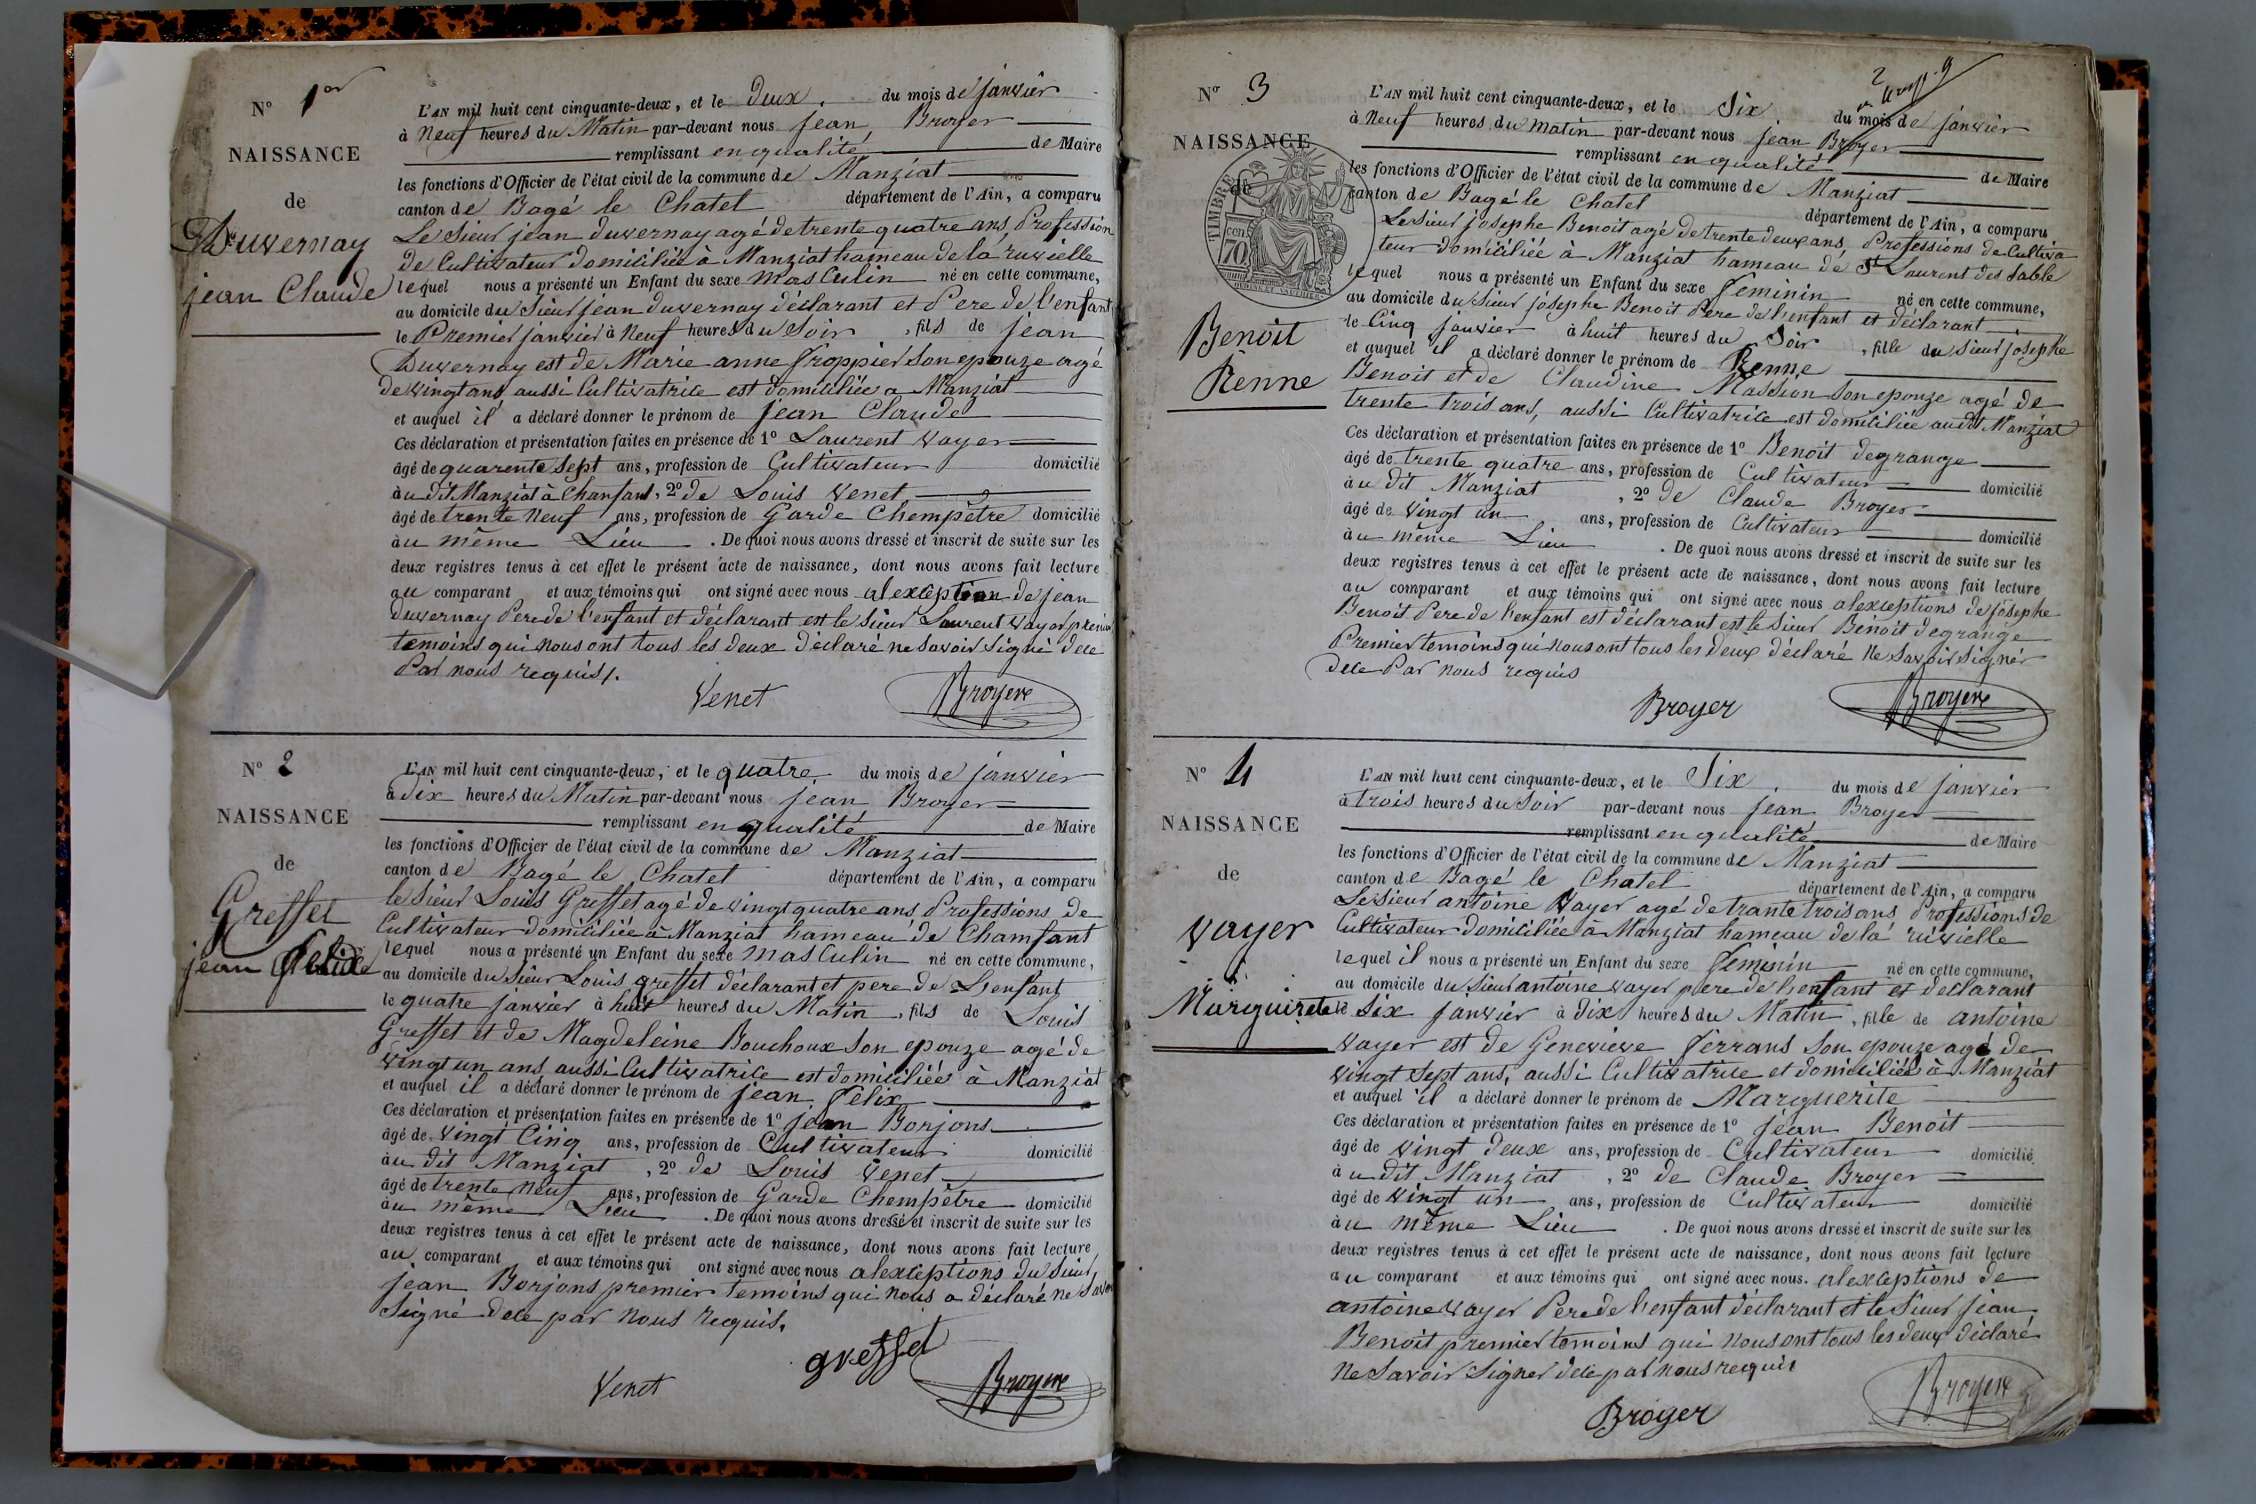 N° 1er
NAISSANCE
de
Duvernay
jean Claude
L'AN mil huit cent cinquante-deux, et le deux. du mois de janvier
à Neuf heures du Matin par-devant nous jean Broyer
remplissant en qualité de Maire
les fonctions d'Officier de l'état civil de la commune de Manziat
canton de Bagé le Chatel département de l'Ain, a comparu
Le Sieur jean duvernay agé de trente quatre ans, Profession
de Cultivateur domiciliée à Manziat hameau de la ruvielle
lequel nous a présenté un Enfant du sexe masculin né en cette commune,
au domicile du Sieur jean duvernay déclarant et Pere de l'enfant
le Premier janvier à Neuf heures du Soir, fils de jean
Duvernay est de Marie anne froppier Son epouze agé
de vingt ans aussi Cultivatrice est domiciliée a Manziat
et auquel il a déclaré donner le prénom de jean Claude
Ces déclaration et présentation faites en présence de 1° Laurent vayer
âgé de quarente Sept ans, profession de Cultivateur domicilié
au dit Manziat à Chanfant, 2° de Louis Venet
âgé de trente Neuf ans, profession de Garde Chempêtre domicilié
au même Lieu. De quoi nous avons dressé et inscrit de suite sur les
deux registres tenus à cet effet le présent acte de naissance, dont nous avons fait lecture
au comparant et aux témoins qui ont signé avec nous alexception de jean
duvernay Pere de l'enfant et déclarant est le Sieur Laurent vayer premier
temoins qui nous ont tous les deux déclaré ne Savoir Signé dece
Par nous requis/.
Venet Broyere
N° 2
NAISSANCE
de
Greffet
jean Felixe
L'AN mil huit cent cinquante-deux, et le quatre du mois de janvier
à dix heures du Matin par-devant nous jean Broyer
remplissant en qualité de Maire
les fonctions d'Officier de l'état civil de la commune de Manziat
canton de Bagé le Chatel département de l'Ain, a comparu
le Sieur Louis Greffet agé de vingt quatre ans Professions de
Cultivateur domiciliée à Manziat hameau de Chamfant
lequel nous a présenté un Enfant du sexe masculin né en cette commune,
au domicile du Sieur Louis greffet déclarant et pere de L'enfant
le quatre janvier à huit heures du Matin, fils de Louis
Greffet et de Magdeleine Bouchoux Son epouze agé de
vingt un ans aussi Cultivatrice est domiciliée à Manziat
et auquel il a déclaré donner le prénom de jean Felix
Ces déclaration et présentation faites en présence de 1° jean Borjons
âgé de vingt Cinq ans, profession de Cultivateur domicilié
au dit Manziat, 2° de Louis Venet
âgé de trente Neuf ans, profession de Garde Chempêtre domicilié
au même Lieu. De quoi nous avons dressé et inscrit de suite sur les
deux registres tenus à cet effet le présent acte de naissance, dont nous avons fait lecture
au comparant et aux témoins qui ont signé avec nous alexceptions du Sieur
jean Borjons premier temoins qui nous a déclaré ne Savoir
Signé dece par nous requis.
greffet
Venet Broyere
N° 3
NAISSANCE
de
TIMBRE
70
Benoit
Renne
L'AN mil huit cent cinquante-deux, et le Six du mois de janvier
à Neuf heures du matin par-devant nous jean Broyer
remplissant en qualité de Maire
les fonctions d'Officier de l'état civil de la commune de Manziat
canton de Bagé le Chatel département de l'Ain, a comparu
Le Sieur josephe Benoit agé de trente deux ans, Professions de Cultiva
teur domiciliée à Manziat hameau de St Laurent des Sable
lequel nous a présenté un Enfant du sexe feminin né en cette commune,
au domicile du Sieur josephe Benoit Pere de l'enfant et déclarant
le Cinq janvier à huit heures du Soir, fille du Sieur josephe
et auquel il a déclaré donner le prénom de Renne
Benoit et de Claudine Massion Son epouze agé de
trente trois ans, aussi Cultivatrice est domiciliée audit Manziat
Ces déclaration et présentation faites en présence de 1° Benoit degrange
âgé de trente quatre ans, profession de Cultivateur domicilié
au dit Manziat, 2° de Claude Broyer
âgé de vingt un ans, profession de Cultivateur domicilié
au même Lieu. De quoi nous avons dressé et inscrit de suite sur les
deux registres tenus à cet effet le présent acte de naissance, dont nous avons fait lecture
au comparant et aux témoins qui ont signé avec nous alexceptions de josephe
Benoit Pere de l'enfant est déclarant est le Sieur Benoit degrange
Premier temoins qui nous ont tous les deux déclaré Ne Savoir signér
dece Par nous requis
Broyer Broyere
N° 4
NAISSANCE
de
vayer
Marguirete
L'AN mil huit cent cinquante-deux, et le Six. du mois de janvier
à trois heures du Soir par-devant nous jean Broyer
remplissant en qualité de Maire
les fonctions d'Officier de l'état civil de la commune de Manziat
canton de Bagé le Chatel département de l'Ain, a comparu
Le Sieur antoine Vayer agé de trante trois ans Professions de
Cultivateur domiciliée a Manziat hameau de la ruvielle
lequel il nous a présenté un Enfant du sexe feminin né en cette commune,
au domicile du Sieur antoine vayer pere de l'enfant et declarant
le Six janvier à dix heures du Matin, fille de antoine
vayer est de Genevieve ferrans Son epouze agé de
vingt Sept ans, aussi Cultivatrice et domiciliée à Manziat
et auquel il a déclaré donner le prénom de Marguerite
Ces déclaration et présentation faites en présence de 1° jean Benoit
âgé de vingt deux ans, profession de Cultivateur domicilié
au dit Manziat, 2° de Claude Broyer
âgé de vingt un ans, profession de Cultivateur domicilié
au même Lieu. De quoi nous avons dressé et inscrit de suite sur les
deux registres tenus à cet effet le présent acte de naissance, dont nous avons fait lecture
au comparant et aux témoins qui ont signé avec nous. alexceptions de
antoine vayer Pere de l'enfant déclarant et le Sieur jean
Benoit premier temoins qui nous ont tous les deux déclaré
Ne Savoir Signer dece par nous requis
Broyer Broyere